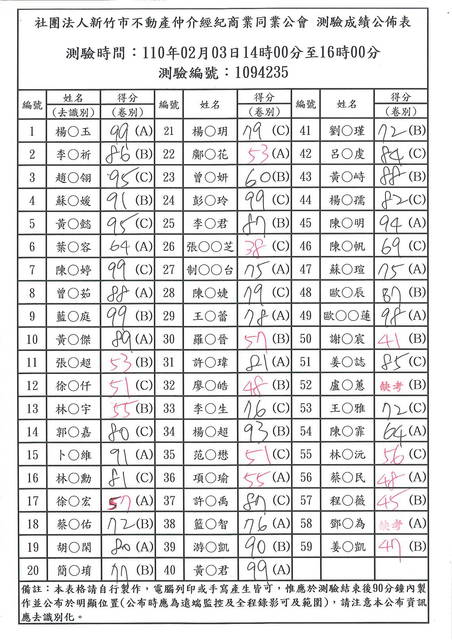 社團法人新竹市不動產仲介經紀商業同業公會 測驗成績公佈表
測驗時間：110年02月03日14時00分至16時00分
測驗編號：1094235
編號 姓名(去識別) 得分(卷別) 編號 姓名(去識別) 得分(卷別) 編號 姓名(去識別) 得分(卷別)
1 楊○玉 99 (A) 21 楊○玥 79 (C) 41 劉○瑾 72 (B)
2 李○祈 86 (B) 22 鄺○花 53 (A) 42 呂○虔 84 (C)
3 趙○翎 95 (C) 23 曾○妍 60 (B) 43 黃○峙 88 (B)
4 蘇○媛 91 (B) 24 彭○玲 99 (C) 44 楊○孺 82 (C)
5 黃○懿 95 (C) 25 李○君 87 (B) 45 陳○明 94 (A)
6 葉○容 64 (A) 26 張○○芝 38 (C) 46 陳○帆 69 (C)
7 陳○婷 99 (C) 27 制○○台 75 (A) 47 蘇○瑄 75 (A)
8 曾○茹 88 (A) 28 陳○婕 79 (C) 48 歐○辰 87 (B)
9 藍○庭 99 (B) 29 王○蕾 78 (A) 49 歐○○蓮 98 (A)
10 黃○傑 89 (A) 30 羅○晉 57 (B) 50 謝○宸 41 (B)
11 張○超 53 (B) 31 許○瑋 81 (A) 51 姜○誌 85 (C)
12 徐○仟 51 (C) 32 廖○皓 48 (B) 52 盧○蕙 缺考 (B)
13 林○宇 55 (B) 33 李○生 76 (C) 53 王○雅 72 (C)
14 郭○嘉 80 (C) 34 楊○超 93 (B) 54 陳○霏 64 (A)
15 卜○維 91 (A) 35 范○懋 51 (C) 55 林○沅 56 (C)
16 林○勳 81 (C) 36 項○瑜 55 (A) 56 蔡○民 48 (A)
17 徐○宏 57 (A) 37 許○禹 87 (C) 57 程○薇 45 (B)
18 蔡○佑 72 (B) 38 藍○智 76 (A) 58 鄧○為 缺考 (A)
19 胡○閑 80 (A) 39 游○凱 90 (B) 59 姜○凱 47 (B)
20 簡○堉 77 (B) 40 黃○君 99 (A)
備註：本表格請自行製作，電腦列印或手寫產生皆可，惟應於測驗結束後90分鐘內製
作並公布於明顯位置(公布時應為遠端監控及全程錄影可及範圍)，請注意本公布資訊
應去識別化。